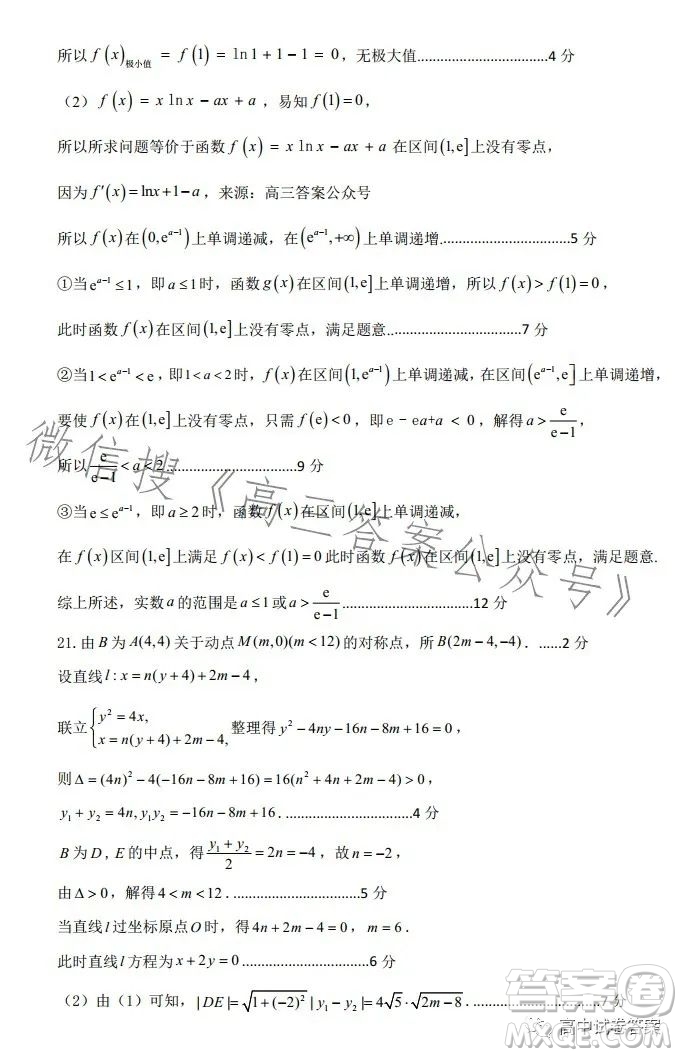 所以f(x)极小值 = f(1) = ln1+1−1 = 0，无极大值.................................4 分
（2）f(x) = x ln x − ax + a，易知f(1)=0，
所以所求问题等价于函数f(x) = x ln x − ax + a 在区间(1,e]上没有零点，
因为f′(x)=lnx+1−a，来源：高三答案公众号
所以f(x)在(0,e^{a−1})上单调递减，在(e^{a−1},+∞)上单调递增.................................5 分
①当e^{a−1}≤1，即a≤1时，函数g(x)在区间(1,e]上单调递增，所以f(x)>f(1)=0，
此时函数f(x)在区间(1,e]上没有零点，满足题意..................................7 分
②当1<e^{a−1}<e，即1<a<2时，f(x)在区间(1,e^{a−1})上单调递减，在区间(e^{a−1},e]上单调递增，
要使f(x)在(1,e]上没有零点，只需f(e)<0，即e－ea+a < 0，解得a>e/(e−1)，
所以e/(e−1)<a<2.................................9 分
③当e≤e^{a−1}，即a≥2时，函数f(x)在区间(1,e]上单调递减，
在f(x)区间(1,e]上满足f(x)<f(1)=0此时函数f(x)在区间(1,e]上没有零点，满足题意.
综上所述，实数a的范围是a≤1或a>e/(e−1).................................12 分
21.由B为A(4,4)关于动点M(m,0)(m<12)的对称点，所B(2m−4,−4)．......2 分
设直线l:x=n(y+4)+2m−4，
联立{y²=4x, x=n(y+4)+2m−4,整理得y²−4ny−16n−8m+16=0，
则Δ=(4n)²−4(−16n−8m+16)=16(n²+4n+2m−4)>0，
y₁+y₂=4n,y₁y₂=−16n−8m+16．................................4 分
B为D,E的中点，得(y₁+y₂)/2=2n=−4，故n=−2，
由Δ>0，解得4<m<12．................................5 分
当直线l过坐标原点O时，得4n+2m−4=0，m=6．
此时直线l方程为x+2y=0................................6 分
（2）由（1）可知，|DE|=√(1+(−2)²)|y₁−y₂|=4√5·√(2m−8)．................................7 分
微信搜《高三答案公众号》
答案卷
高中试卷答案